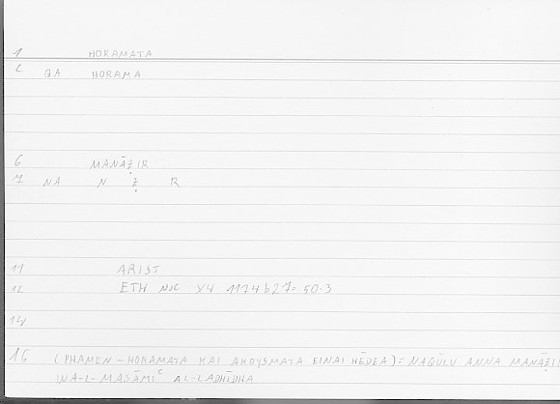 1 HORAMATA
2 QA HORAMA
6 MANĀẒIR
7 NA N Ẓ R
11 ARIST
12 ETH NIC X4 1174b27= 50.3
14
16 (PHAMEN - HORAMATA KAI AKOYSMATA EINAI HĒDEA) = NAQŪLU ANNA MANĀẒI
WA-L-MASĀMIʿ AL-LADHĪDHA